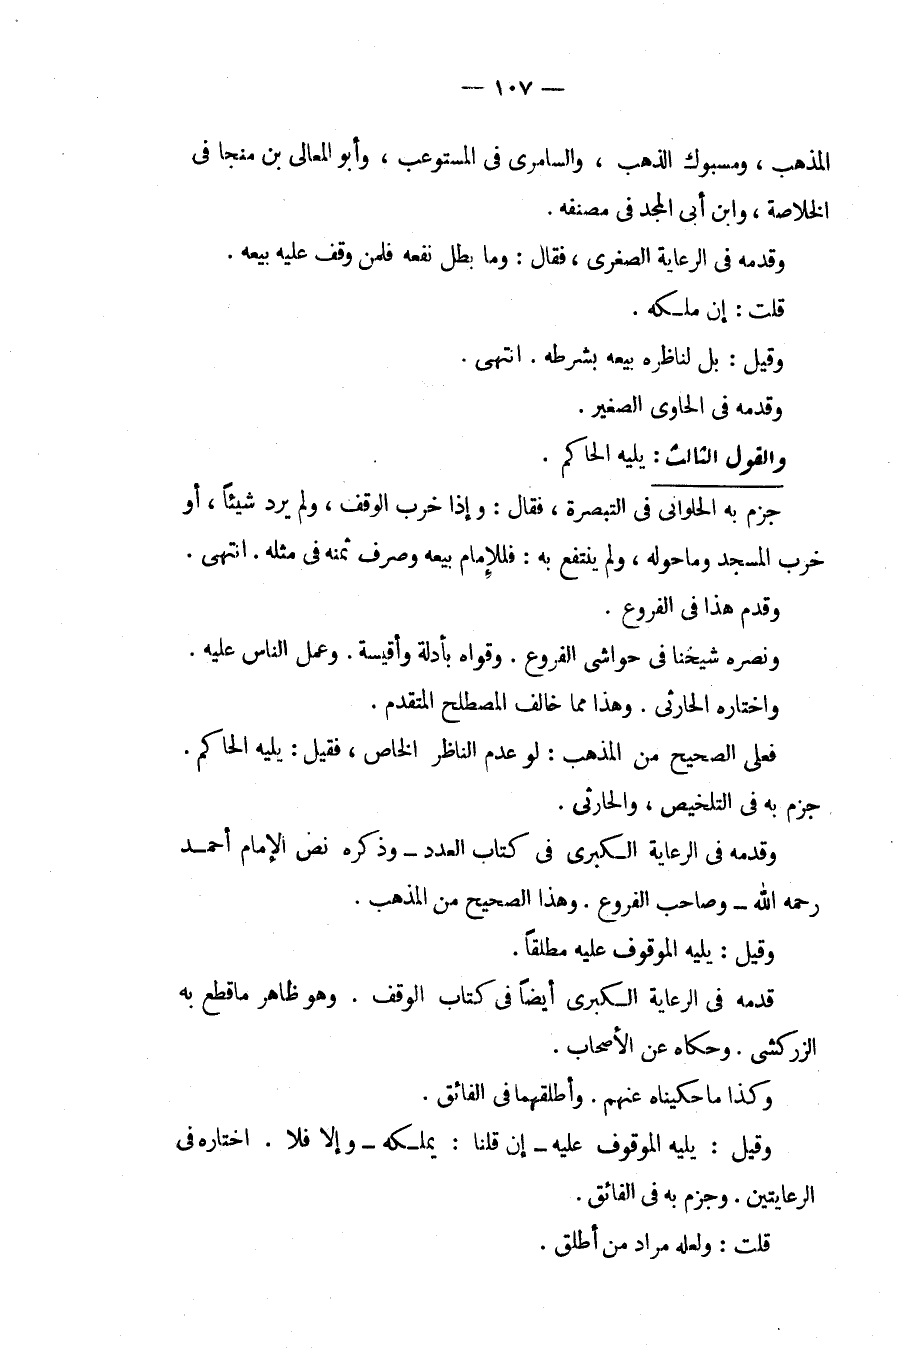 — ١٠٧ —
المذهب ، ومسبوك الذهب ، والسامرى فى المستوعب ، وأبو المعالى بن منجا فى
الخلاصة ، وابن أبى المجد فى مصنفه .
وقدمه فى الرعاية الصغرى ، فقال : وما بطل نفعه فلمن وقف عليه بيعه .
قلت : إن ملكه .
وقيل : بل لناظره بيعه بشرطه . انتهى .
وقدمه فى الحاوى الصغير .
والقول الثالث : يليه الحاكم .
جزم به الحلوانى فى التبصرة ، فقال : وإذا خرب الوقف ، ولم يرد شيئاً ، أو
خرب المسجد وماحوله ، ولم ينتفع به : فللإمام بيعه وصرف ثمنه فى مثله . انتهى .
وقدم هذا فى الفروع .
ونصره شيخنا فى حواشى الفروع . وقواه بأدلة وأقيسة . وعمل الناس عليه .
واختاره الحارثى . وهذا مما خالف المصطلح المتقدم .
فعلى الصحيح من المذهب : لو عدم الناظر الخاص ، فقيل : يليه الحاكم .
جزم به فى التلخيص ، والحارثى .
وقدمه فى الرعاية الكبرى فى كتاب العدد – وذكره نص الإمام أحمد
رحمه الله – وصاحب الفروع . وهذا الصحيح من المذهب .
وقيل : يليه الموقوف عليه مطلقاً .
قدمه فى الرعاية الكبرى أيضاً فى كتاب الوقف . وهو ظاهر ماقطع به
الزركشى . وحكاه عن الأصحاب .
وكذا ماحكيناه عنهم . وأطلقهما فى الفائق .
وقيل : يليه الموقوف عليه – إن قلنا : يملكه – وإلا فلا . اختاره فى
الرعايتين . وجزم به فى الفائق .
قلت : ولعله مراد من أطلق .